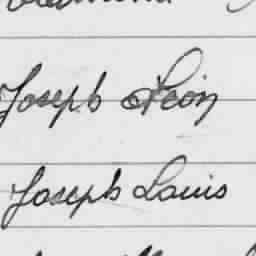 Joseph Léon
Joseph Louis